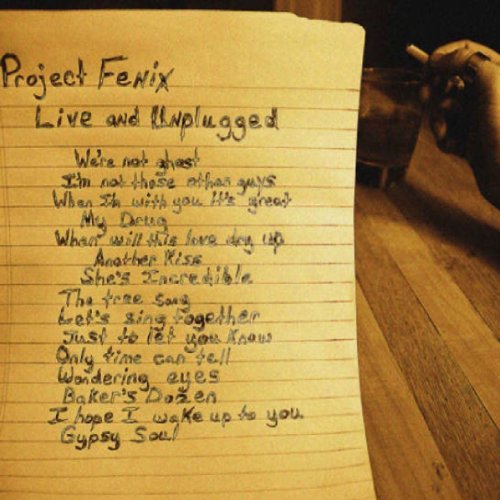 Project Fenix
Live and Unplugged
We're not ghost
I'm not those other guys
When I'm with you it's great
My Drug
When will this love dry up
Another Kiss
She's Incredible
The tree song
Let's sing together
Just to let you know
Only time can tell
Wondering eyes
Baker's Dozen
I hope I wake up to you.
Gypsy Soul